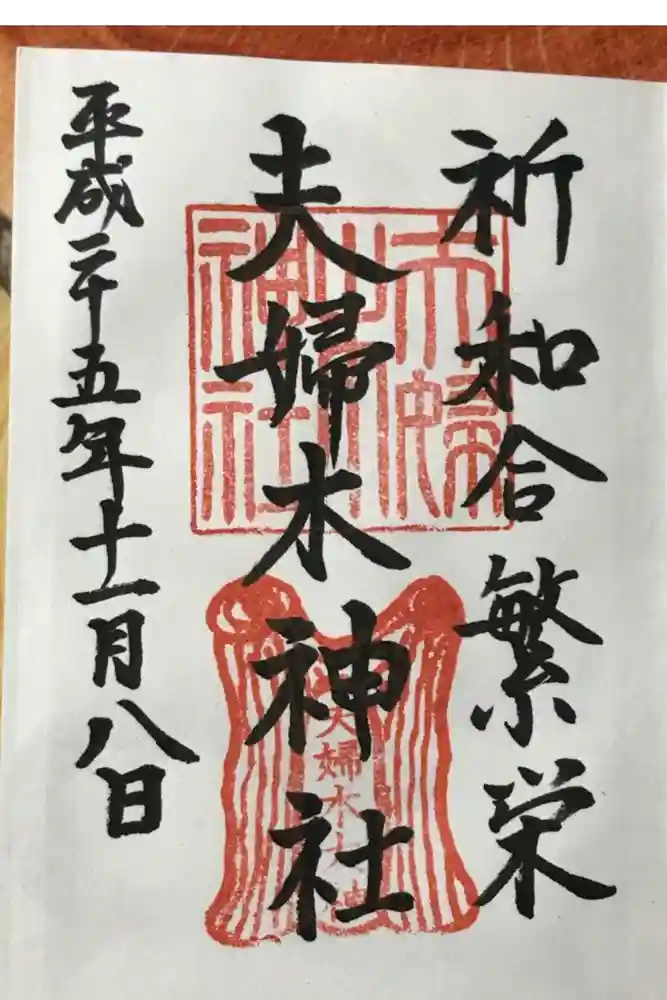 祈和合繁栄
夫婦木神社
平成二十五年十一月八日
夫婦木
神社